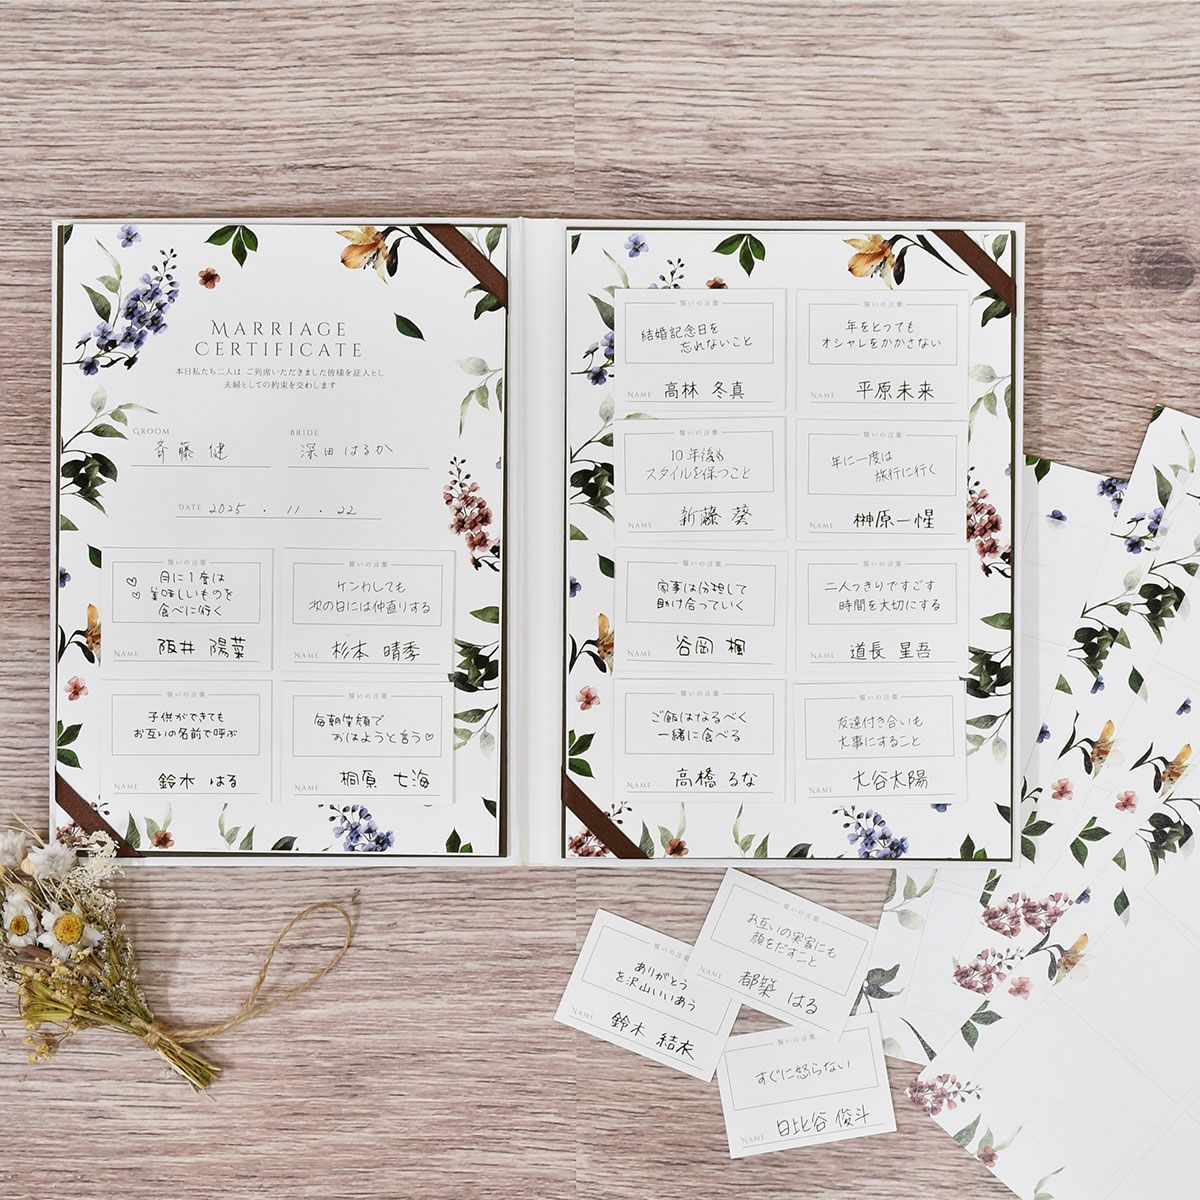 MARRIAGE
CERTIFICATE
本日私たち二人は ご列席いただきました皆様を証人とし
夫婦としての約束を交わします
GROOM
斉藤 健
BRIDE
深田 はるか
DATE 2025 . 11 . 22
誓いの言葉
月に1度は
美味しいものを
食べに行く
NAME 阪井 陽菜
誓いの言葉
ケンカしても
次の日には仲直りする
NAME 杉本 晴季
誓いの言葉
子供ができても
お互いの名前で呼ぶ
NAME 鈴木 はる
誓いの言葉
毎朝笑顔で
おはようと言う♡
NAME 桐原 七海
誓いの言葉
結婚記念日を
忘れないこと
NAME 高林 冬真
誓いの言葉
年をとっても
オシャレをかかさない
NAME 平原未来
誓いの言葉
10年後も
スタイルを保つこと
NAME 新藤 葵
誓いの言葉
年に一度は
旅行に行く
NAME 榊原一惺
誓いの言葉
家事は分担して
助け合っていく
NAME 谷岡 楓
誓いの言葉
二人っきりですごす
時間を大切にする
NAME 道長 星吾
誓いの言葉
ご飯はなるべく
一緒に食べる
NAME 高橋 るな
誓いの言葉
友達付き合いも
大事にすること
NAME 大谷太陽
誓いの言葉
お互いの実家にも
顔をだすこと
NAME 都築 はる
誓いの言葉
ありがとう
を沢山いいあう
NAME 鈴木 結衣
誓いの言葉
すぐに怒らない
NAME 日比谷 俊斗